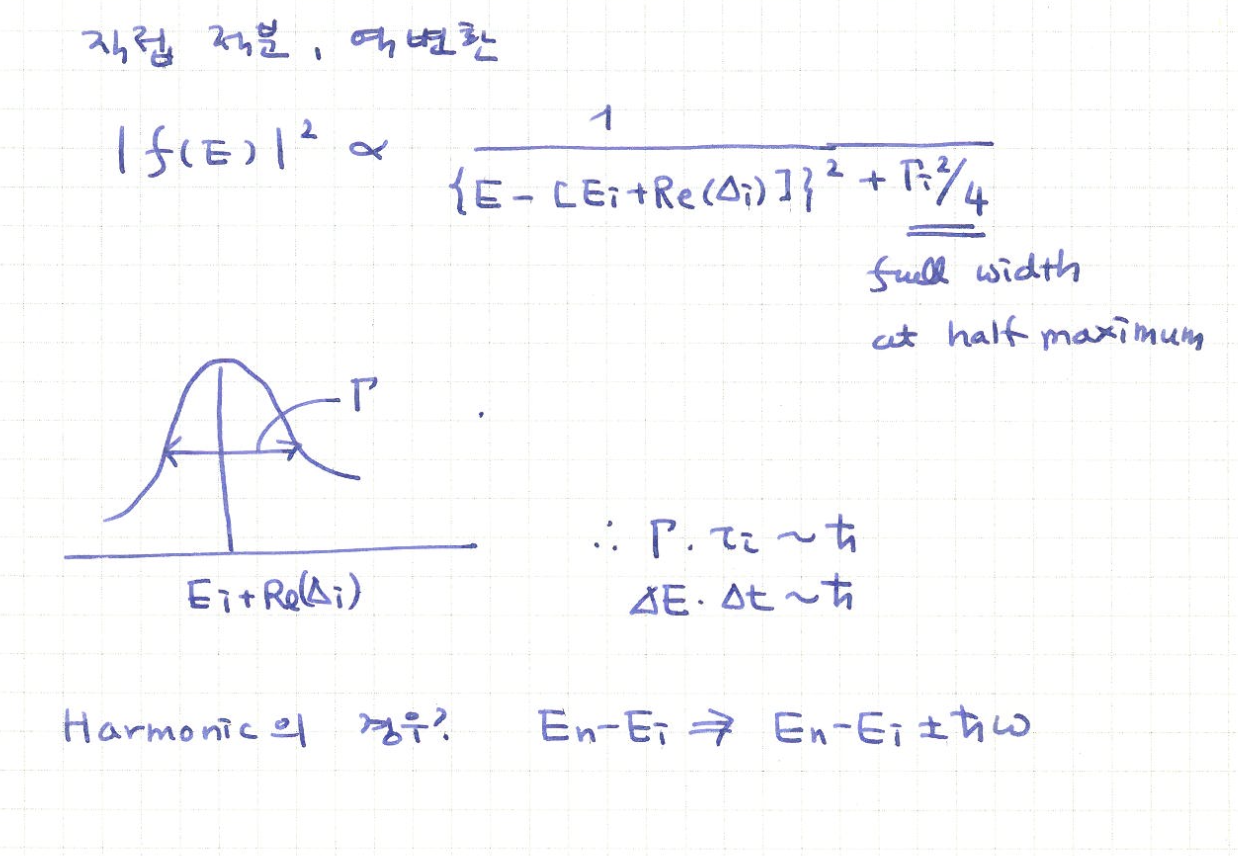 직접 적분, 역변환
|f(E)|² ∝ 1 / {E - [Ei + Re(Δi)]}² + Γi²/4
full width
at half maximum
Γ
Ei + Re(Δi)
∴ Γ · τi ~ ħ
ΔE · Δt ~ ħ
Harmonic의 경우? En - Ei ⇒ En - Ei ± ħω